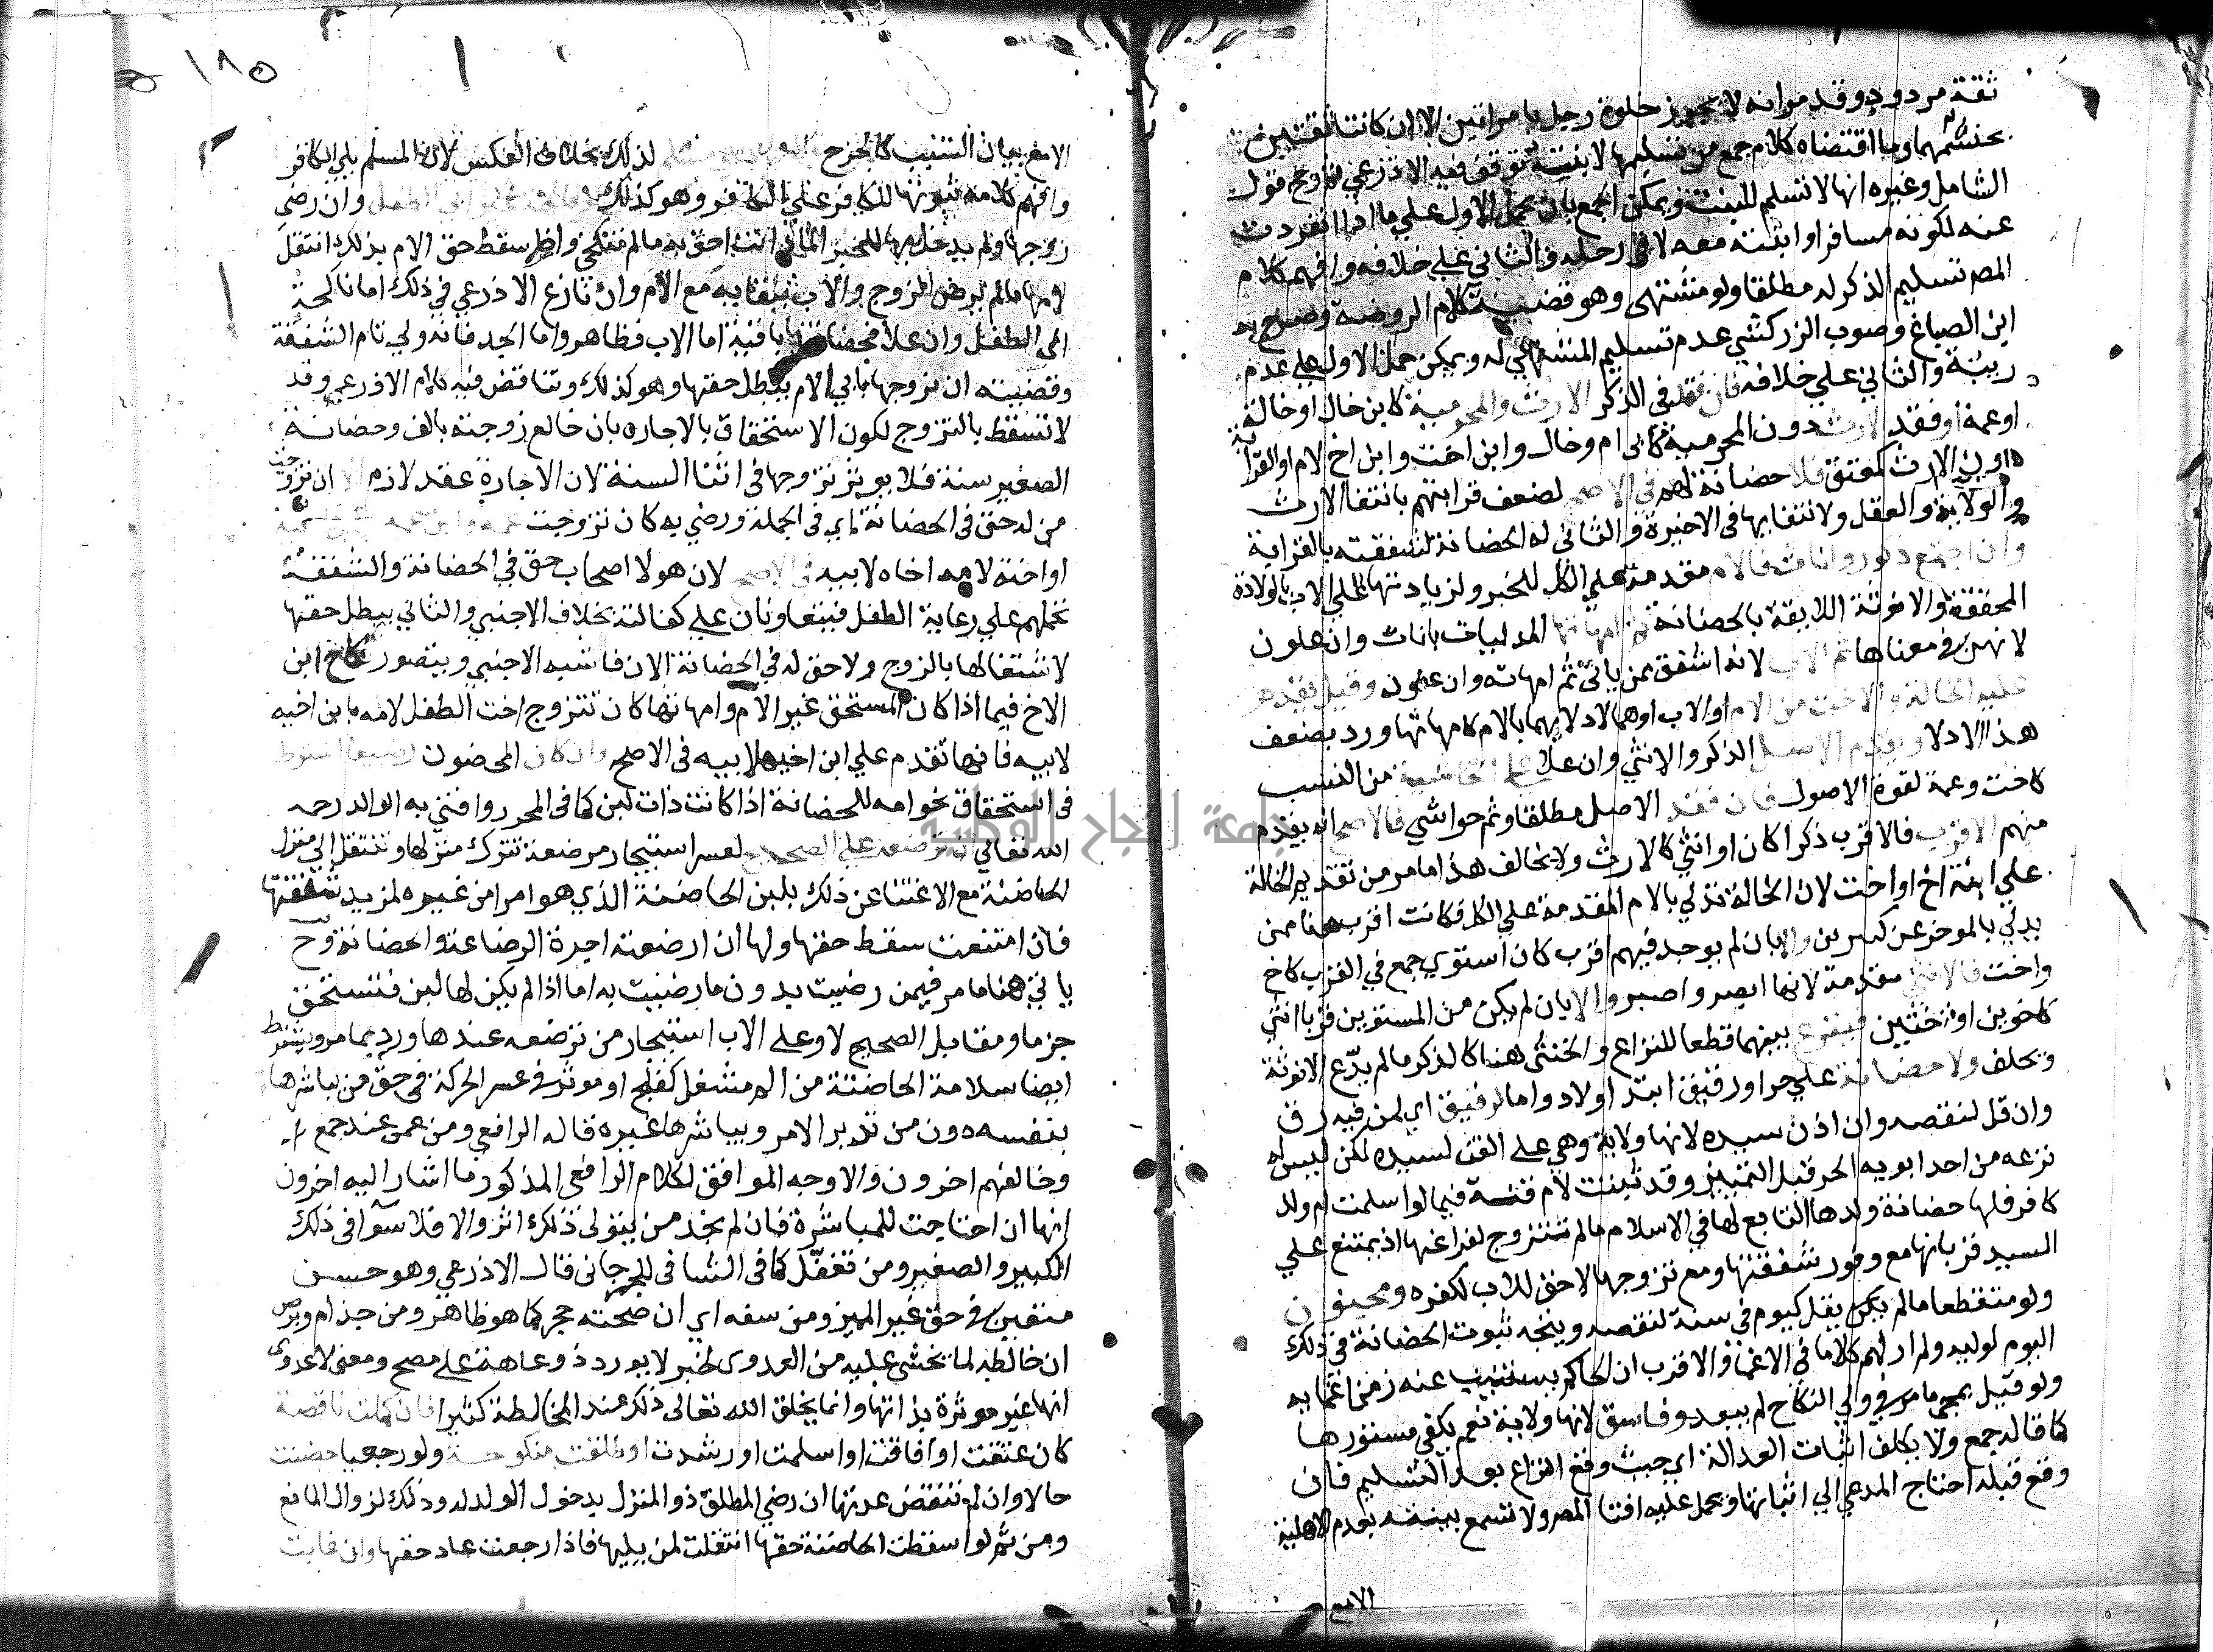 ثقة مردود وقد مر انه لا يجوز خلوة رجل بامراتين الا ان كانتا ثقتين
يحتشمهما وما اقتضاه كلام جمع من تسليمها لابنته توقف فيه الاذرعي قول
الشامل وغيره انها لا تسلم للبنت ويمكن الجمع بان يحمل الاول علي ما اذا انفردت
عنه لكونه مسافرا وابنته معه لا في رحله والثاني علي خلافه وافهم كلام
المصر تسليم الذكر له مطلقا ولو مشتهى وهو قضية كلام الروضة وصرح به
ابن الصباغ وصوب الزركشي عدم تسليم المشتهي له ويمكن حمل الاول علي عدم
ريبة والثاني علي خلافه فان فقد في الذكر الارث والمحرمية كابن خال او خالة
او عمة او فقد الارث دون المحرمية كابي ام وخال وابن اخت وابن اخ لام او القرابة
دون الارث كمعتق فلا حضانة لهم في الاصح لضعف قرابتهم بانتفا الارث
والولاية والعقل ولانتفايها في الاخيرة والثاني له الحضانة لشفقته بالقرابة
وان اجتمع ذكور واناث فالام مقدمة علي الكل للخبر ولزيادتها علي الاب بالولادة
المحققة والانوثة اللايقة بالحضانة ثم امهاتها المدليات باناث وان علون
لانهن في معناها ثم الاب لانه اشفق ممن ياتي ثم امهاته وان علون وقيل تقدم
عليه الخالة والاخت من الام او الاب او هما لادلايهما بالام كامهاتها ورد بضعف
هذا الادلا ويقدم الاصل الذكر والانثي وان علا علي الحاشية من النسب
كاخت وعمة لقوة الاصول فان فقد الاصل مطلقا وثم حواشي فالاصح انه يقدم
منهم الاقرب فالاقرب ذكرا كان او انثي كالارث ولا يخالف هذا ما مر من تقديم الخالة
علي ابنة اخ او اخت لان الخالة تدلي بالام المقدمة علي الكل فكانت اقرب هنا ممن
يدلي بالموخر عن كثيرين والا بان لم يوجد فيهم اقرب كان استوي جمع في القرب كاخ
واخت فالانثي مقدمة لانها ابصر واصبر والا بان لم يكن من المستويين قربا انثي
كاخوين او اختين فيقرع بينهما قطعا للنزاع والخنثي هنا كالذكر ما لم يدّع الانوثة
ويحلف ولا حضانة علي حر او رقيق ابتدا ودواما لرقيق اي لمن فيه رق
وان قل لنقصه وان اذن سيده لانها ولاية وهي علي القن لسيده لكن ليس له
نزعه من احد ابويه الحر قبل التمييز وقد تثبت لام قنة فيما لو اسلمت ام ولد
كافر فلها حضانة ولدها التابع لها في الاسلام ما لم تتزوج لفراغها اذ يمتنع علي
السيد قربانها مع وفور شفقتها ومع تزوجها لا حق للاب لكفره ومجنون
ولو متقطعا ما لم يكن يقل كيوم في سنة لنقصه ويتجه ثبوت الحضانة في ذلك
اليوم لوليه ولم ار لهم كلاما في الاغما والاقرب ان الحاكم يستنيب عنه زمن اغمايه
ولو قيل بمجي ما مر في ولي النكاح لم يبعد وفاسق لانها ولاية نعم يكفي مستورها
كما قاله جمع ولا يكلف اثبات العدالة اي حيث وقع النزاع بعد التسليم فان
وقع قبله احتاج المدعي الي اثباتها ويحمل عليه افتا المصر ولا تسمع بينته بعدم الاهلية
الامع
١٨٥
الامع بيان السبب كالجرح لذلك بخلاف العكس لان المسلم يلي الكافر
وافهم كلامه ثبوتها للكافر علي الكافر وهو كذلك وان رضي
زوجها ولم يدخل بها للخبر الماتي انت احق به ما لم تنكحي واذا سقط حق الام بذلك انتقل
لامها ما لم يرض الزوج والاب ببقايه مع الام وان نازع الاذرعي في ذلك اما ناكحة
ابي الطفل وان علا فحضانتها باقية اما الاب فظاهر واما الجد فلانه ولي تام الشفقة
وقضيته ان تزوجها بابي الام يبطل حقها وهو كذلك وتناقض فيه كلام الاذرعي وقد
لا تسقط بالتزوج لكون الاستحقاق بالاجاره بان خالع زوجته بالف وحضانة
الصغير سنة فلا يوثر تزوجها في اثنا السنة لان الاجارة عقد لازم الا ان تزوجت
من له حق في الحضانة اي في الجملة ورضي به كان تزوجت عمه وابن عمه
او اخته لامه اخاه لابيه في الاصح لان هولا اصحاب حق في الحضانة والشفقة
تحملهم علي رعاية الطفل فيتعاونان علي كفالته بخلاف الاجنبي والثاني يبطل حقها
لاشتغالها بالزوج ولا حق له في الحضانة الان فاشبه الاجنبي ويتصور نكاح ابن
الاخ فيما اذا كان المستحق غير الام وامهاتها كان تتزوج اخت الطفل لامه بابن اخيه
لابيه فانها تقدم علي ابن اخيه لابيه في الاصح وان كان المحضون رضيعا اشترط
في استحقاق نحو امه للحضانة اذا كانت ذات لبن كما في المحرر وافتي به الوالد رحمه
الله تعالي ان ترضعه علي الصحيح لعسر استيجار مرضعة تترك منزلها وتنتقل الي منزل
الحاضنة مع الاغتنا عن ذلك بلبن الحاضنة الذي هو امرا من غيره لمزيد شفقتها
فان امتنعت سقط حقها ولها ان ارضعته اجرة الرضاعة والحضانة وح
ياتي هنا ما مر فيمن رضيت بدون ما رضيت به اما اذا لم يكن لها لبن فتستحق
جزما ومقابل الصحيح لا وعلي الاب استيجار من ترضعه عندها ورد بما مر ويشترط
ايضا سلامة الحاضنة من الم مشغل كفلج او موثر في عسر الحركة في حق من يباشرها
بنفسه دون من تدبر الامر ويباشرها غيره قاله الرافعي ومن عمى عند جمع
وخالفهم اخرون والاوجه الموافق لكلام الرافعي المذكور ما اشار اليه اخرون
انها ان احتاجت للمباشرة فان لم تجد من يتولى ذلك اثر والا فلا سوآ في ذلك
الكبير والصغير ومن تغفّل كما في الشافي للجرجاني قال الاذرعي وهو حسن
متعين في حق غير المميز ومن سفه اي ان صحبته حجر كما هو ظاهر ومن جذام وبرص
ان خالطه لما يخشى عليه من العدوى لخبر لا يورد ذو عاهة علي مصح ومعنى لا عدوى
انها غير موثرة بذاتها وانما يخلق الله تعالى ذلك عند المخالطة كثيرا فان كملت ناقصة
كان عتقت او افاقت او اسلمت او رشدت او طلقت منكوحة ولو رجعيا حضنت
حالا وان لم تنقض عدتها ان رضي المطلق ذو المنزل بدخول الولد له وذلك لزوال المانع
ومن ثم لو اسقطت الحاضنة حقها انتقلت لمن يليها فاذا رجعت عاد حقها وان غابت